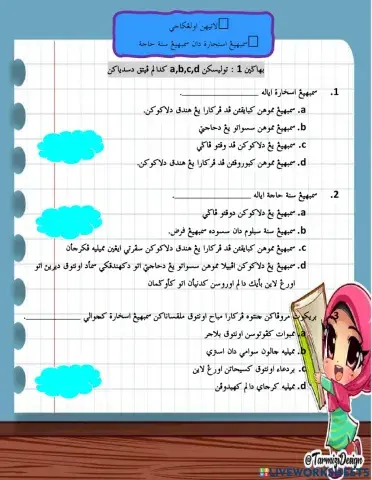 لاتيهن اولڠكاجي
سمبهيڠ استخارة دان سمبهيڠ سنة حاجة
بهاڬين 1 : توليسكن a,b,c,d كدالم ڤيتق دسدياكن
1. سمبهيڠ اسخارة اياله ____________.
a. سمبهيڠ مموهن كبايقڤن قد ڤركارا يڠ هندق دلاكوكن.
b. سمبهيڠ مموهن سسواتو يڠ دحاجتي
c. سمبهيڠ يڠ دلاكوكن قد وقتو ڤاڬي
d. سمبهيڠ مموهن كبوروقتن قد ڤركارا يڠ هندق دلاكوكن.
2. سمبهيڠ سنة حاجة اياله ____________.
a. سمبهيڠ يڠ دلاكوكن دوقتو ڤاڬي
b. سمبهيڠ سنة سبلوم دان سسوده سمبهيڠ فرض.
c. سمبهيڠ مموهن كبايقڤن قد ڤركارا يڠ هندق دلاكوكن سڤرتي ايڠين مميليه ڤكرجأن
d. سمبهيڠ يڠ دلاكوكن اڤبيلا مموهن سسواتو يڠ دحاجتي اتو دكهندقكي سمأد اونتوق ديرين اتو
اورڠ لاين بأيك دالم اوروسن كدنيأن اتو كأوڬمان
3. بريكوت مروڤاكن چنتوه ڤركارا مباح اونتوق ملقساناكن سمبهيڠ استخارة كچوالي ____________.
a. ممبوات كڤوتوسن اونتوق بلاجر
b. مميليه چالون سوامي دان استري
c. بردعاء اونتوق كسيحاتن اورڠ لاين
d. مميليه كرجاي دالم كهيدوڤن
@TarmiziDesign
LIVEWORKSHEETS